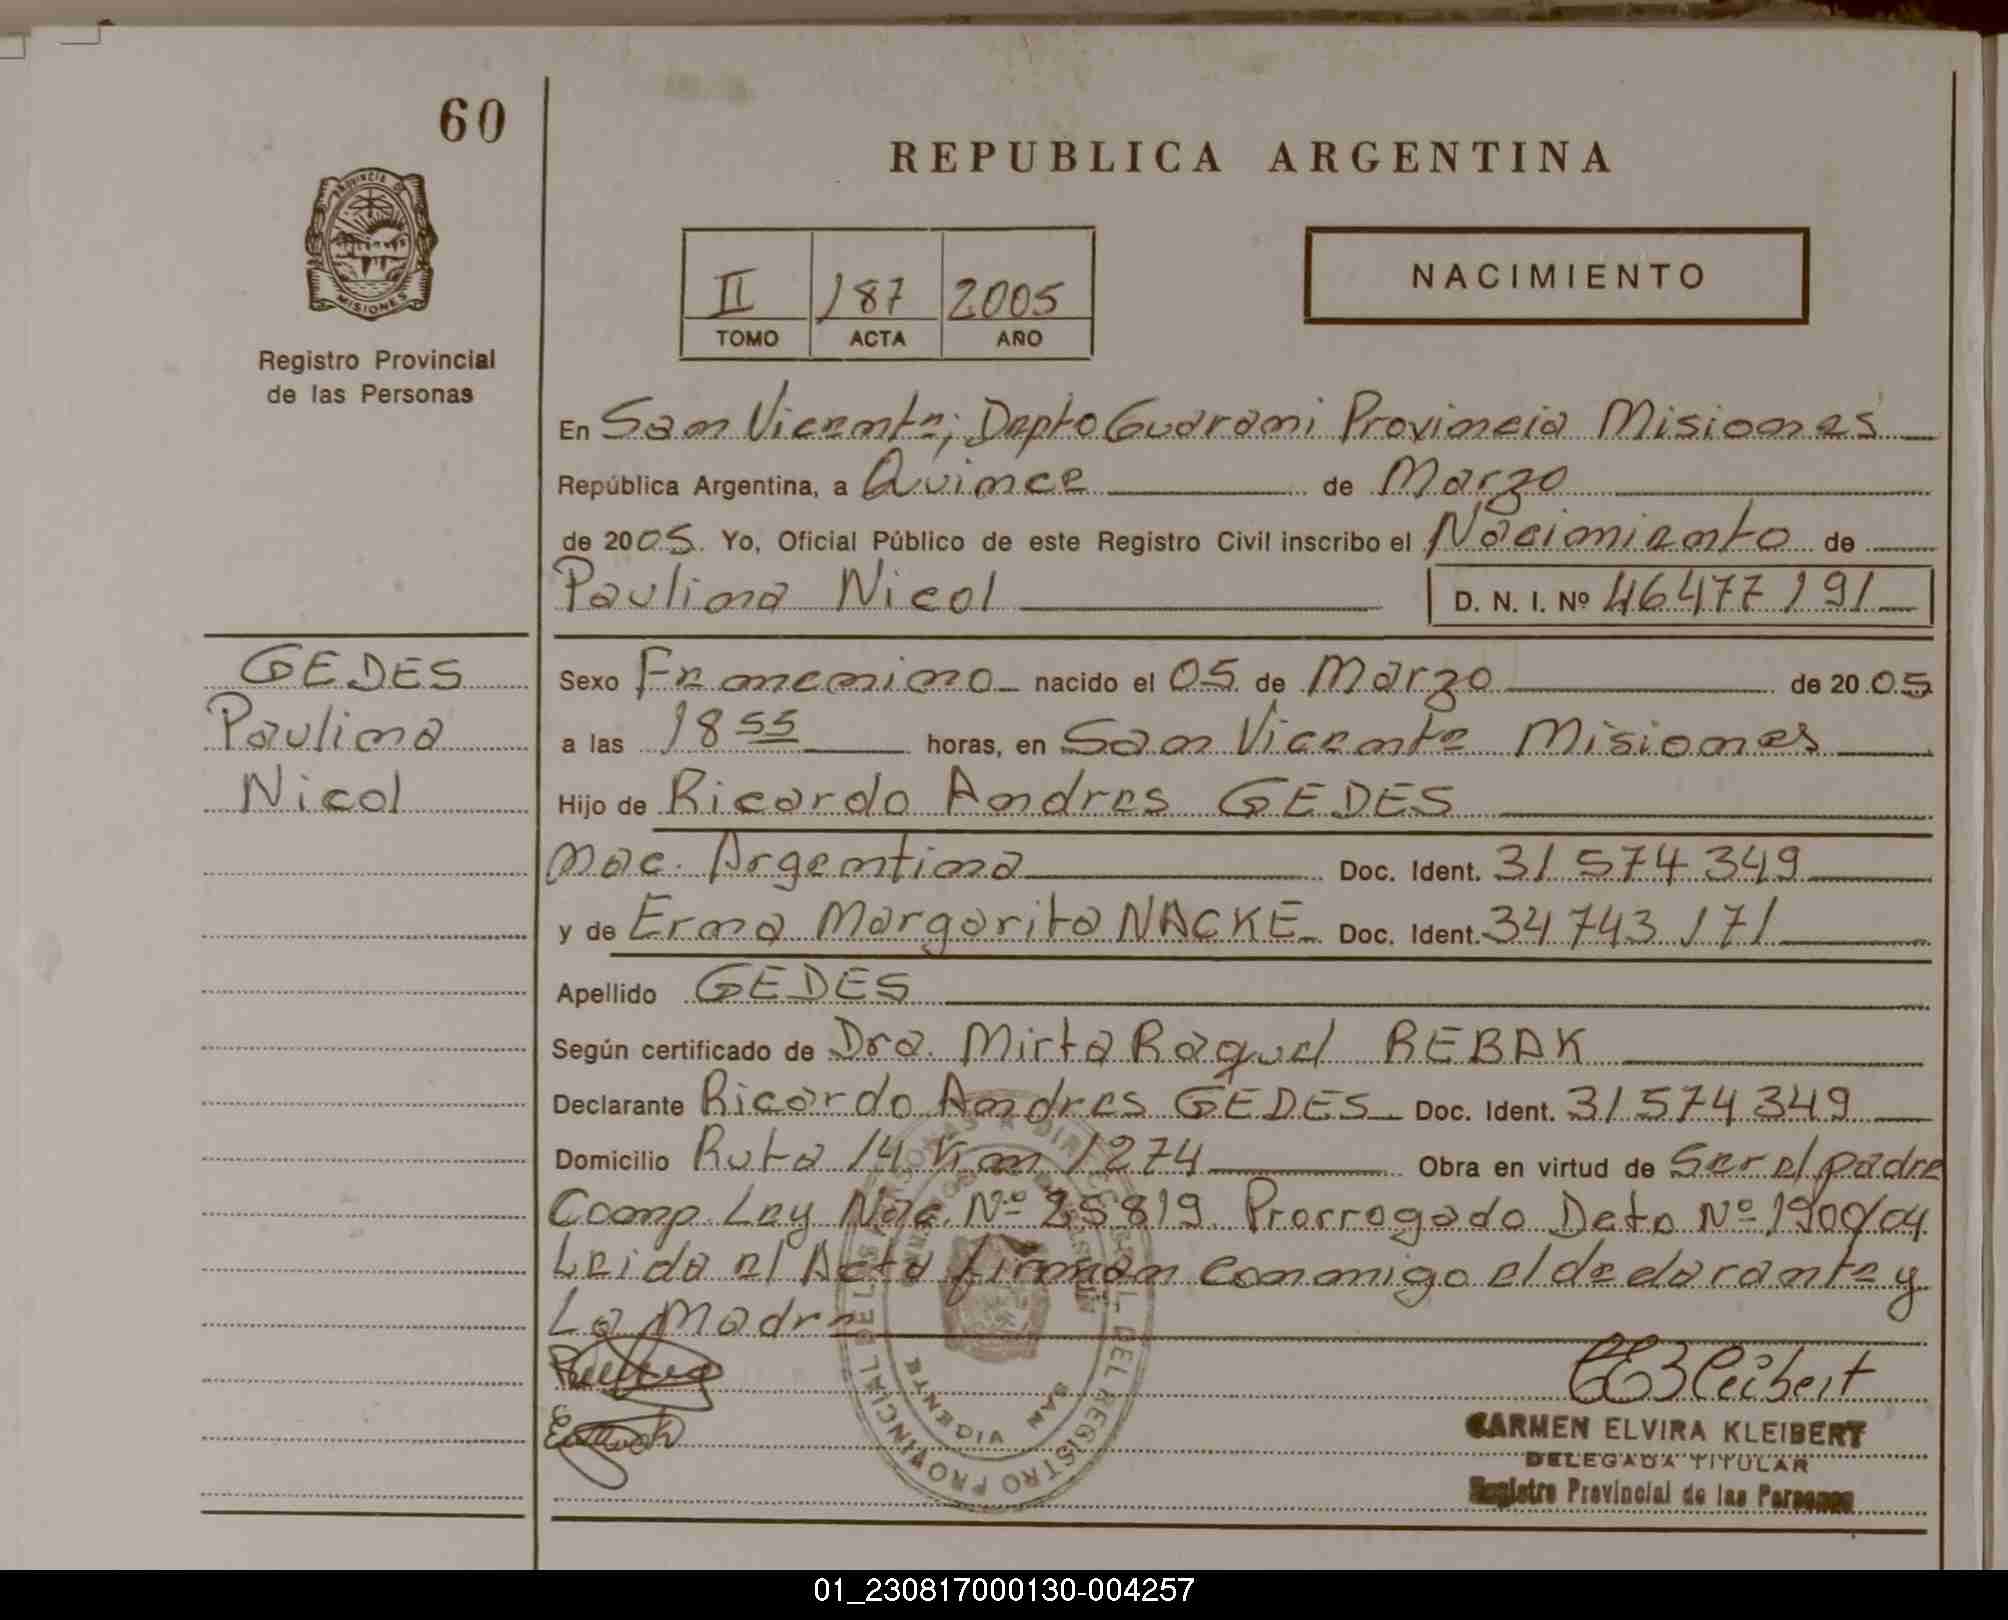 60
REPUBLICA ARGENTINA
PROVINCIA DE
MISIONES
Registro Provincial
de las Personas
II 187 2005
TOMO ACTA AÑO
NACIMIENTO
En San Vicente; Depto Guarani Provincia Misiones
República Argentina, a Quince de Marzo
de 2005. Yo, Oficial Público de este Registro Civil inscribo el Nacimiento de
Paulina Nicol D. N. I. Nº 46477191
GEDES
Paulina
Nicol
Sexo Femenino nacido el 05 de Marzo de 20 05
a las 18 55 horas, en San Vicente Misiones
Hijo de Ricardo Andres GEDES
nac. Argentina Doc. Ident. 31 574 349
y de Erna Margarita NACKE Doc. Ident. 34 743 171
Apellido GEDES
Según certificado de Dra. Mirta Raquel REBAK
Declarante Ricardo Andres GEDES Doc. Ident. 31 574 349
Domicilio Ruta 14 Km 1274 Obra en virtud de Ser el padre
Comp. Ley Nac. Nº 25819 Prorrogado Dcto Nº 1900/04
Leida el Acta firman conmigo el declarante y
La Madre
SAN VICENTE
CARMEN ELVIRA KLEIBERT
DELEGADA TITULAR
Registro Provincial de las Personas
01_230817000130-004257